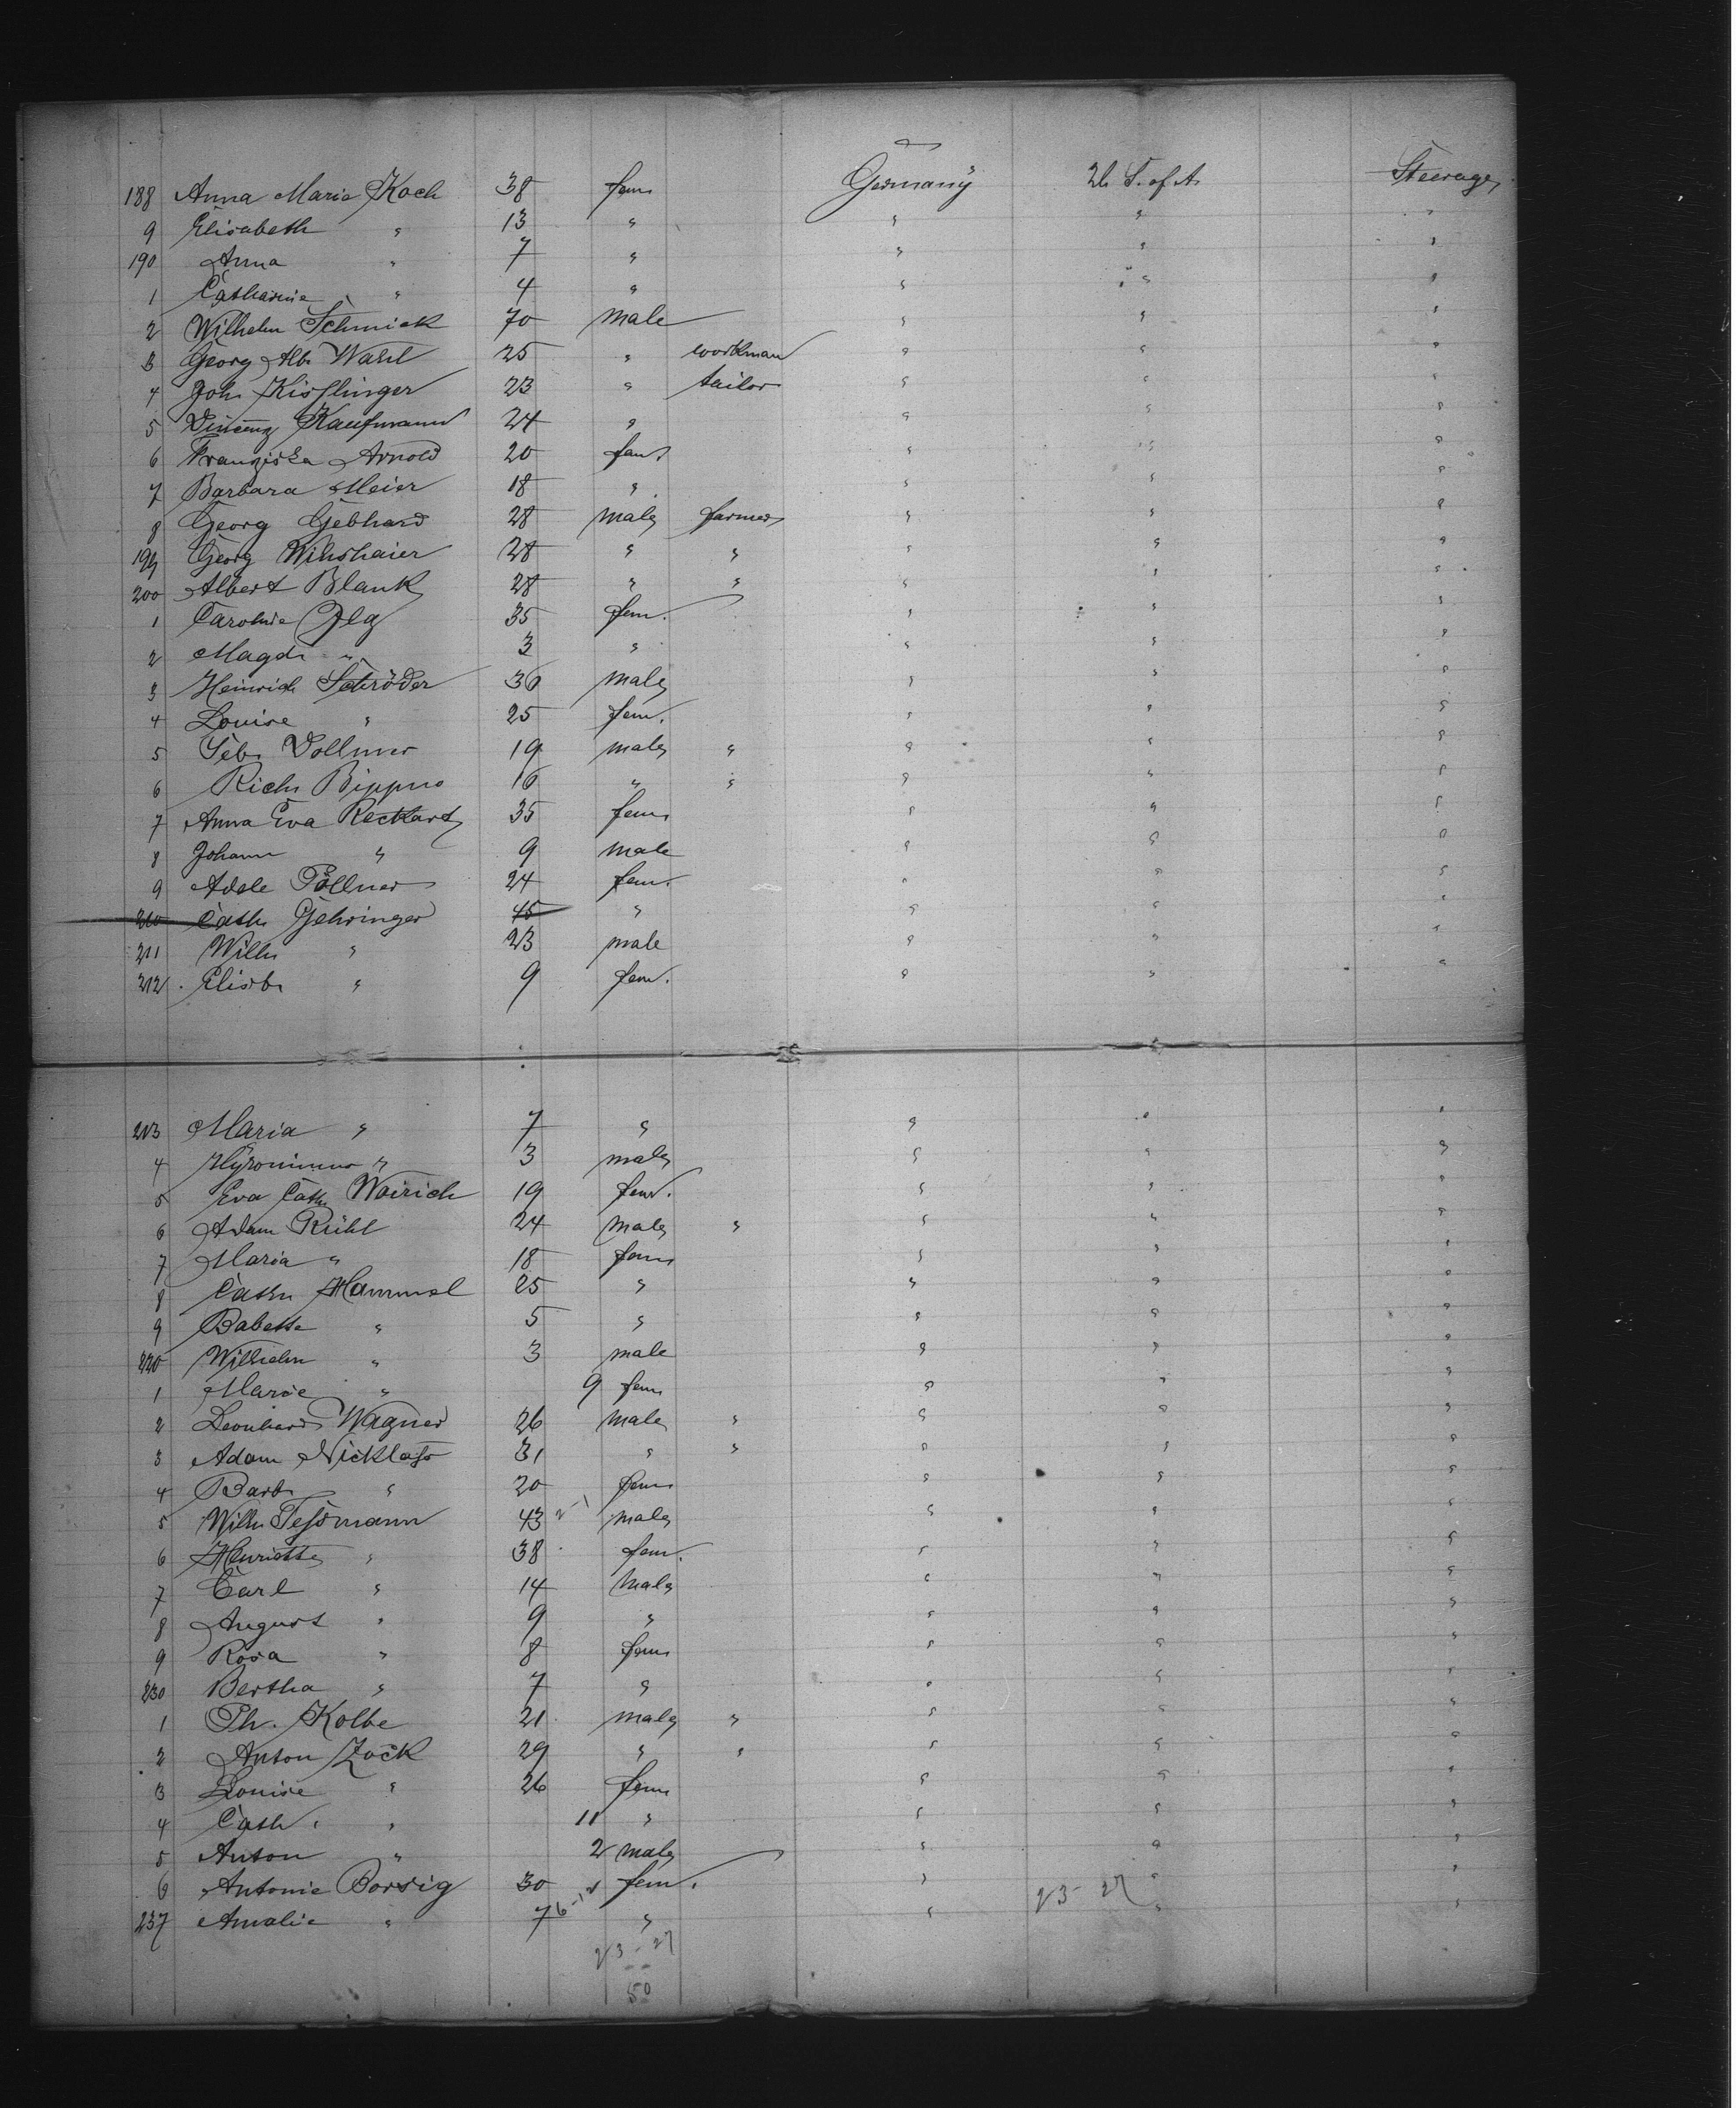 188 Anna Maria Koch 38 fem. Germany U. S. of A. Steerage
9 Elisabeth " 13 " " " "
190 Anna " 7 " " " "
1 Catharine " 4 " " " "
2 Wilhelm Schmick 70 male " " "
3 Georg Alb. Wahl 25 " workman " " "
4 Joh. Kisslinger 23 " tailor " " "
5 Vincenz Kaufmann 24 " " " "
6 Franziska Arnold 20 fem. " " "
7 Barbara Meier 18 " " " "
8 Georg Gebhard 28 male farmer " " "
199 Georg 28 " " " " "
200 Albert Blank 28 " " " " "
1 Caroline Ilg 35 fem. " " "
2 Magd. " 3 " " " "
3 Heinrich Schröder 36 male " " "
4 Louise " 25 fem. " " "
5 Seb. Vollmer 19 male " " " "
6 Rich. 16 " " " " "
7 Anna Eva Reckart 35 fem. " " "
8 Johann " 9 male " " "
9 Adele Pöllner 24 fem. " " "
210 Cath. Gehringer 45 " " " "
211 Wilh. " 23 male " " "
212 Elisb. " 9 fem. " " "
213 Maria " 7 " " " "
4 Hyronimus " 3 male " " "
5 Eva Cath. Weirich 19 fem. " " "
6 Adam Rühl 24 male " " " "
7 Maria " 18 fem. " " "
8 Cath. Hammel 25 " " " "
9 Babette " 5 " " " "
220 Wilhelm " 3 male " " "
1 Marie " 9 fem. " " "
2 Leonhard Wagner 26 male " " " "
3 Adam Nicklass 31 " " " " "
4 Barb. " 20 fem. " " "
5 Wilh. Tessmann 43 2-1 male " " "
6 Henriette " 38 fem. " " "
7 Carl " 14 male " " "
8 August " 9 " " " "
9 Rosa " 8 fem. " " "
230 Bertha " 7 " " " "
1 Ph. Kolbe 21 male " " " "
2 Anton Zöck 29 " " " " "
3 Louise " 26 fem. " " "
4 Cath. " 11 " " " "
5 Anton " 2 male " " "
6 Antonie Borsig 30 fem. " " "
237 Amalie " 7 6-12 " " 23-27 " "
23-27
50